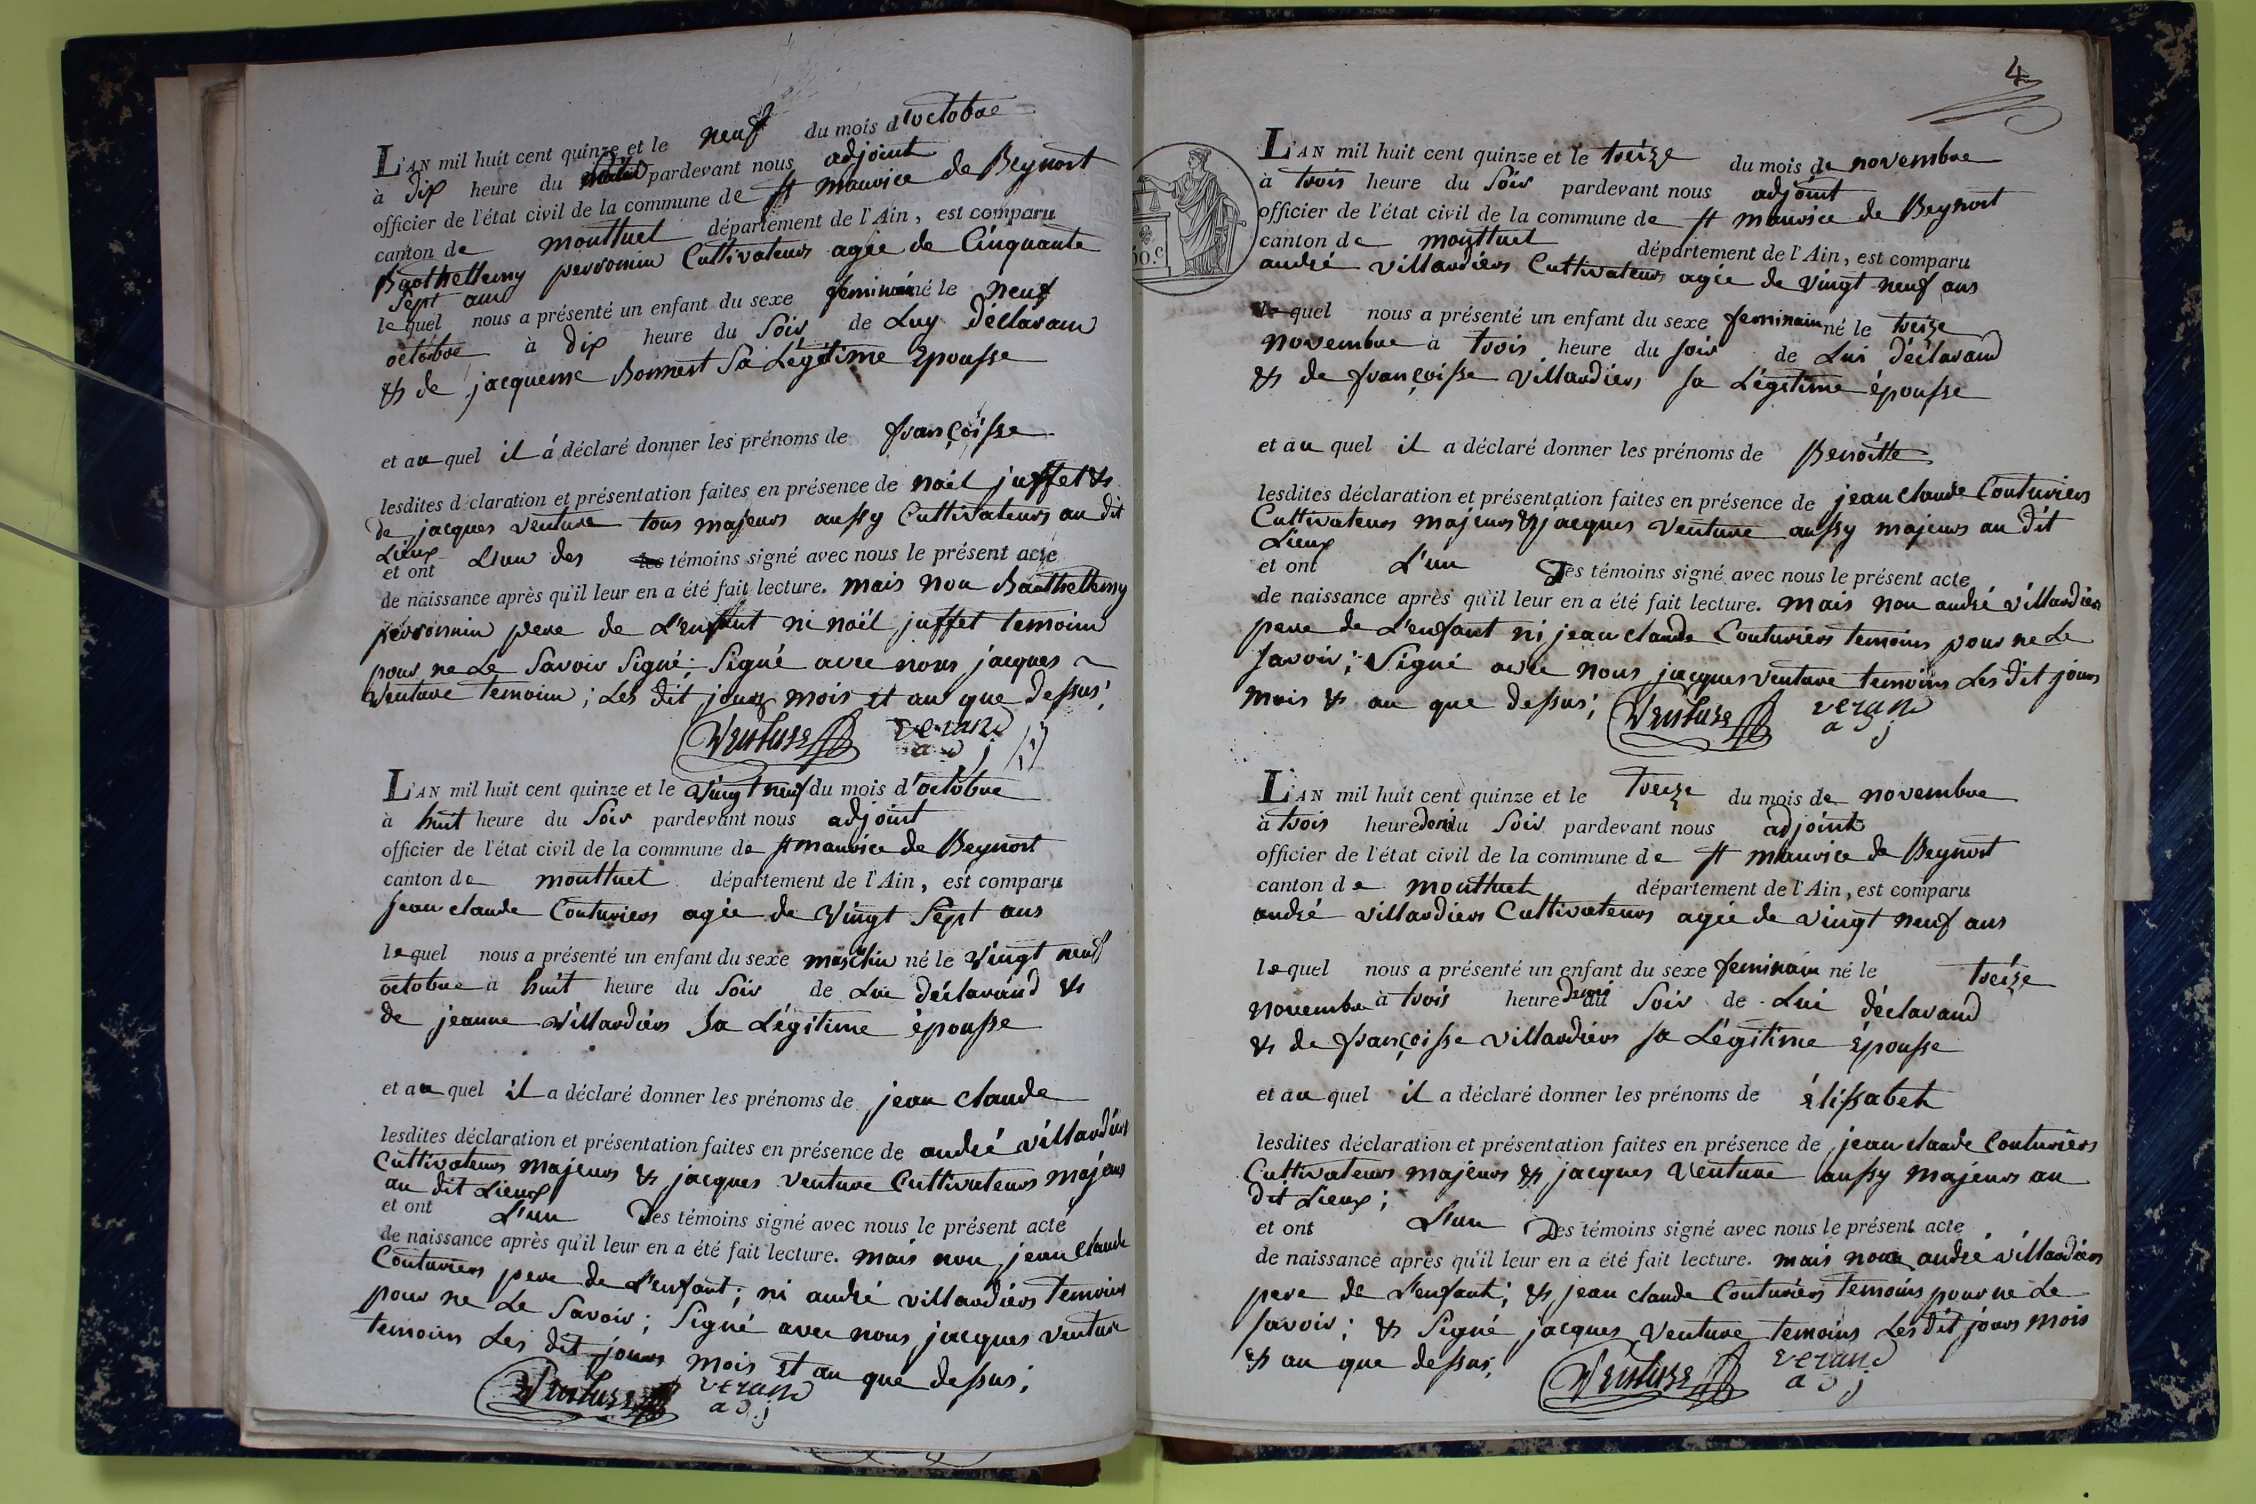 L'AN mil huit cent quinze et le neuf du mois d'octobre
à dix heure du pardevant nous adjoint
officier de l'état civil de la commune de st mauvice de Beynost
canton de montluel département de l'Ain, est comparu
Barthellemy perronin Cultivateurs agée de Cinquante
Sept ans
lequel nous a présenté un enfant du sexe feminin né le neuf
octobre à dix heure du Soir de Luy déclarand
& de jacqueme Bonnest Sa Légitime Epousse
et au quel il à déclaré donner les prénoms de françoisse
lesdites déclaration et présentation faites en présence de noël juffet &
de jacques venture tous majeurs aussy Cultivateurs au dit
Lieux
et ont L'un des témoins signé avec nous le présent acte
de naissance après qu'il leur en a été fait lecture. mais non Barthellemy
perronin pere de L'enfant ni noël juffet temoins
pour ne Le Savoir Signé; Signé avec nous jacques
venture temoins; Les dit jours mois et an que dessus;
Venture verand
adj
L'AN mil huit cent quinze et le vingt neuf du mois d'octobre
à huit heure du Soir pardevant nous adjoint
officier de l'état civil de la commune de st mauvice de Beynost
canton de montluel département de l'Ain, est comparu
jean claude Couturiers agée de Vingt Sept ans
lequel nous a présenté un enfant du sexe masclin né le Vingt neuf
octobre à huit heure du Soir de Lui déclarand &
de jeanne villardiers Sa Légitime épousse
et au quel il a déclaré donner les prénoms de jean claude
lesdites déclaration et présentation faites en présence de andré villardiers
Cultivateurs majeurs & jacques venture Cultivateurs majeurs
au dit Lieux
et ont L'un Des témoins signé avec nous le présent acte
de naissance après qu'il leur en a été fait lecture. mais non jean claude
Couturiers pere de L'enfant; ni andré villardiers temoins
pour ne Le Savoir; Signé avec nous jacques venture
temoins Les dit jours mois et an que dessus;
Venture verand
adj
4
50.c
L'AN mil huit cent quinze et le treize du mois de novembre
à trois heure du Soir pardevant nous adjoint
officier de l'état civil de la commune de st mauvice de Beynost
canton de montluel département de l'Ain, est comparu
andré villardiers Cultivateurs agée de vingt neuf ans
lequel nous a présenté un enfant du sexe feminain né le treize
novembre à trois heure du soir de Lui déclarand
& de françoisse villardiers sa Légitime épousse
et au quel il a déclaré donner les prénoms de Benoitte
lesdites déclaration et présentation faites en présence de jean claude Couturiers
Cultivateurs majeurs & jacques venture aussy majeurs au dit
Lieux
et ont L'un Des témoins signé avec nous le présent acte
de naissance après qu'il leur en a été fait lecture. mais non andré villardiers
pere de L'enfant ni jean claude Couturiers temoins pour ne Le
savoir; Signé avec nous jacques venture temoins Les dit jours
mois & an que dessus;
Venture verand
adj
L'AN mil huit cent quinze et le treize du mois de novembre
à trois heure Demi du Soir pardevant nous adjoint
officier de l'état civil de la commune de st mauvice de Beynost
canton de montluel département de l'Ain, est comparu
andré villardiers Cultivateurs agée de vingt neuf ans
lequel nous a présenté un enfant du sexe feminain né le treize
novembre à trois heure Demi du Soir de Lui déclarand
& de françoisse villardiers sa Légitime épousse
et au quel il a déclaré donner les prénoms de élissabeth
lesdites déclaration et présentation faites en présence de jean claude Couturiers
Cultivateurs majeurs & jacques venture aussy majeurs au
dit Lieux;
et ont L'un Des témoins signé avec nous le présent acte
de naissance après qu'il leur en a été fait lecture. mais non andré villardiers
pere de L'enfant; & jean claude Couturiers temoins pour ne Le
savoir; & Signé jacques venture temoins Les dit jours mois
& an que dessus;
Venture verand
adj